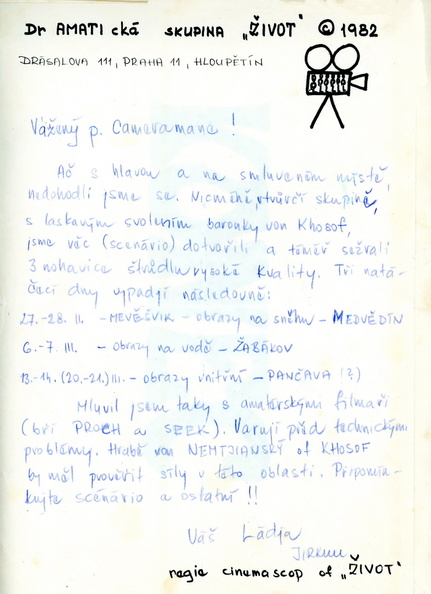 Dr AMATIcká SKUPINA „ŽIVOT" © 1982
DRÁSALOVA 111, PRAHA 11, HLOUPĚTÍN
Vážený p. Cameramane !
Ač s hlavou a na smluveném místě,
nedohodli jsme se. Nicméně, tvůrčí skupině,
s laskavým svolením baronky von Khosof,
jsme věc (scenário) dotvořili a téměř sežrali
3 nohavice štrůdlu vysoké kvality. Tři natá-
čecí dny vypadají následovně:
27.-28. II. - - obrazy na sněhu - MEDVĚDÍN
6.-7. III. - obrazy na vodě - ŽABÁKOV
13.-14. (20.-21.) III. - obrazy vnitřní - PANČAVA (?)
Mluvil jsem taky s amatérskými filmaři
(bří PROCH a SEEK). Varují před technickými
problémy. Hrabě von NEMTJIANSKÝ of KHOSOF
by měl prověřit síly v této oblasti. Připomín-
kujte scénário a ostatní !!
Váš Láďa
regie cinemascop of „ŽIVOT"